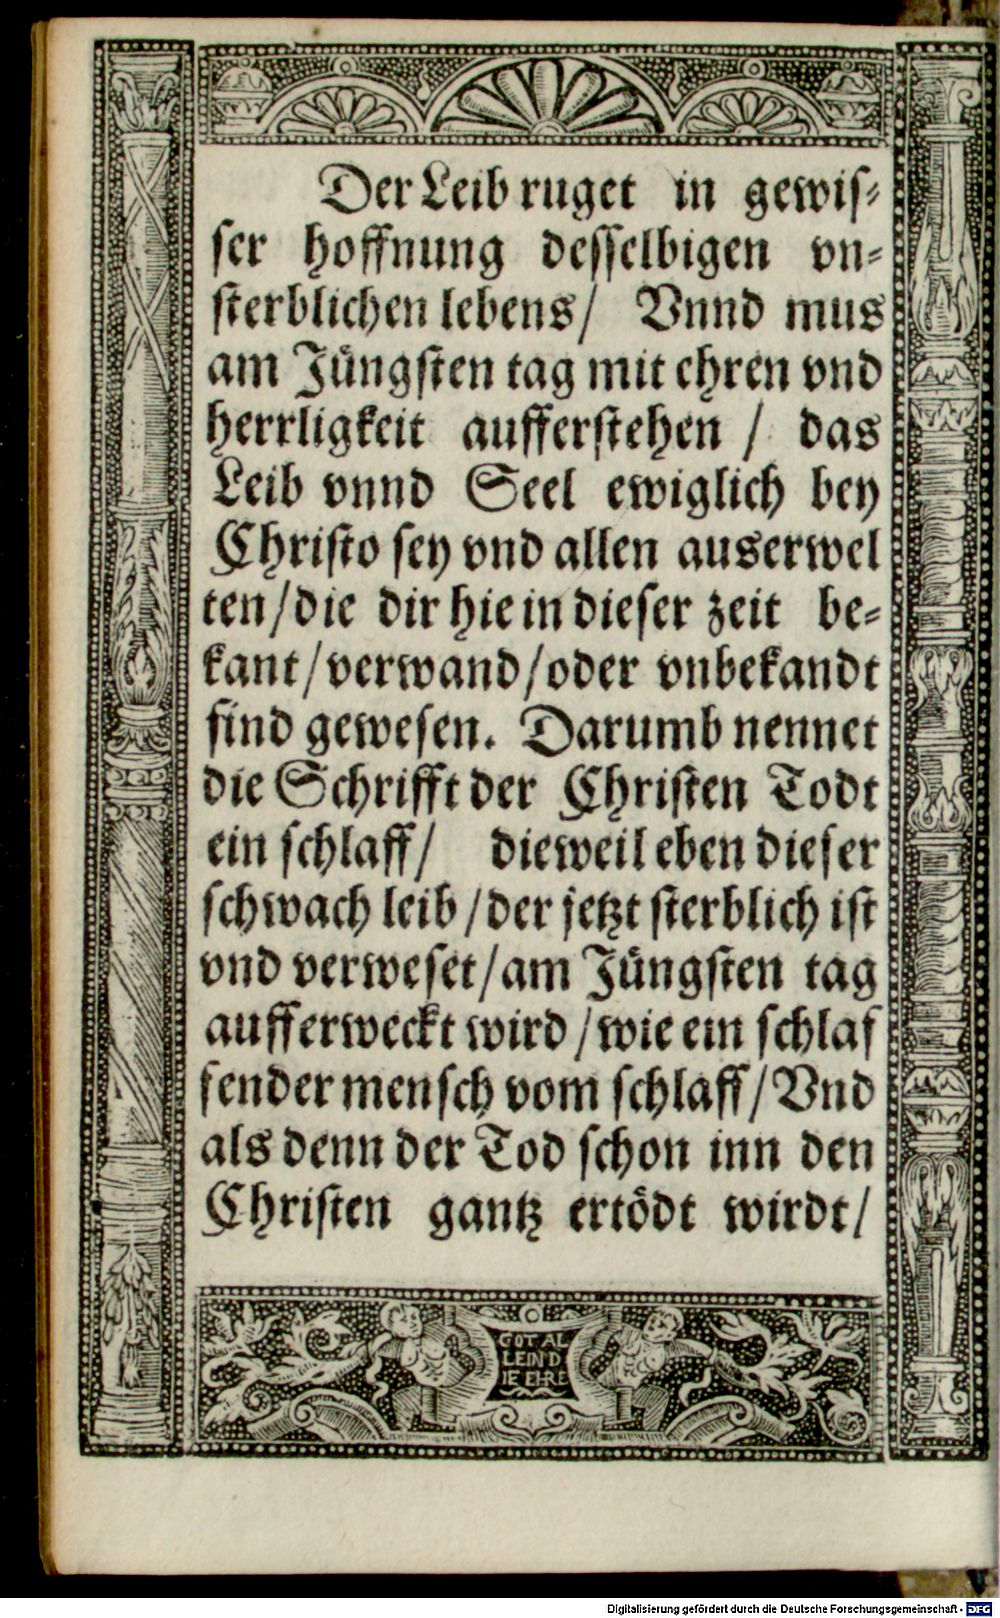 Der Leib ruget in gewis⸗
ser hoffnung desselbigen vn⸗
sterblichen lebens/ Vnnd mus
am Jüngsten tag mit ehren vnd
herrligkeit aufferstehen / das
Leib vnnd Seel ewiglich bey
Christo sey vnd allen auserwel
ten/die dir hie in dieser zeit be⸗
kant/verwand/oder vnbekandt
sind gewesen. Darumb nennet
die Schrifft der Christen Todt
ein schlaff/ dieweil eben dieser
schwach leib/der jetzt sterblich ist
vnd verweset/am Jüngsten tag
aufferweckt wird/wie ein schlaf
fender mensch vom schlaff/Vnd
als denn der Tod schon inn den
Christen gantz ertödt wirdt/
GOT AL
LEIN D
IE EHRE
Digitalisierung gefördert durch die Deutsche Forschungsgemeinschaft - DFG